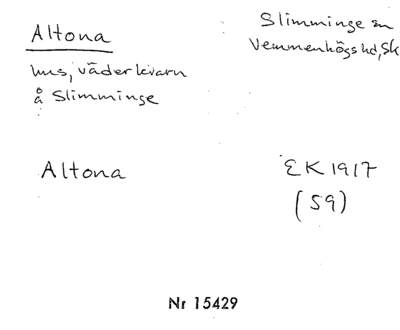 Altona
Slimminge sn
Vemmenhögs hd, Sk
hus, väderkvarn
å Slimminge
Altona
EK 1917
(59)
Nr 15429